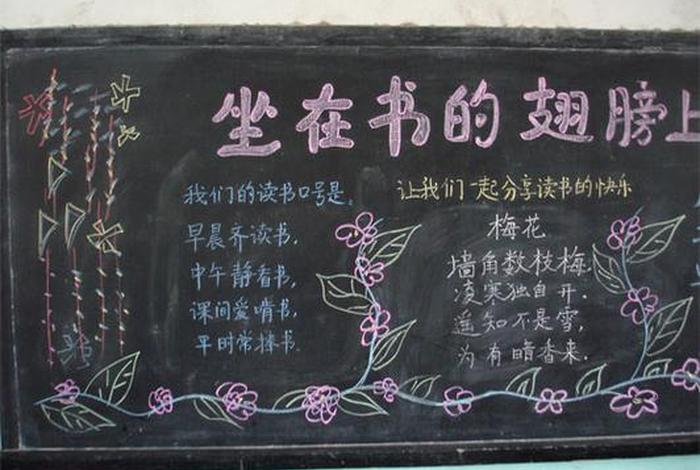 坐在书的翅膀上
我们的读书口号是。
早晨齐读书,
中午静看书,
课间爱啃书,
平时常捧书.
让我们一起分享读书的快乐
梅花
墙角数枝梅.
凌寒独自开.
遥知不是雪,
为有暗香来.